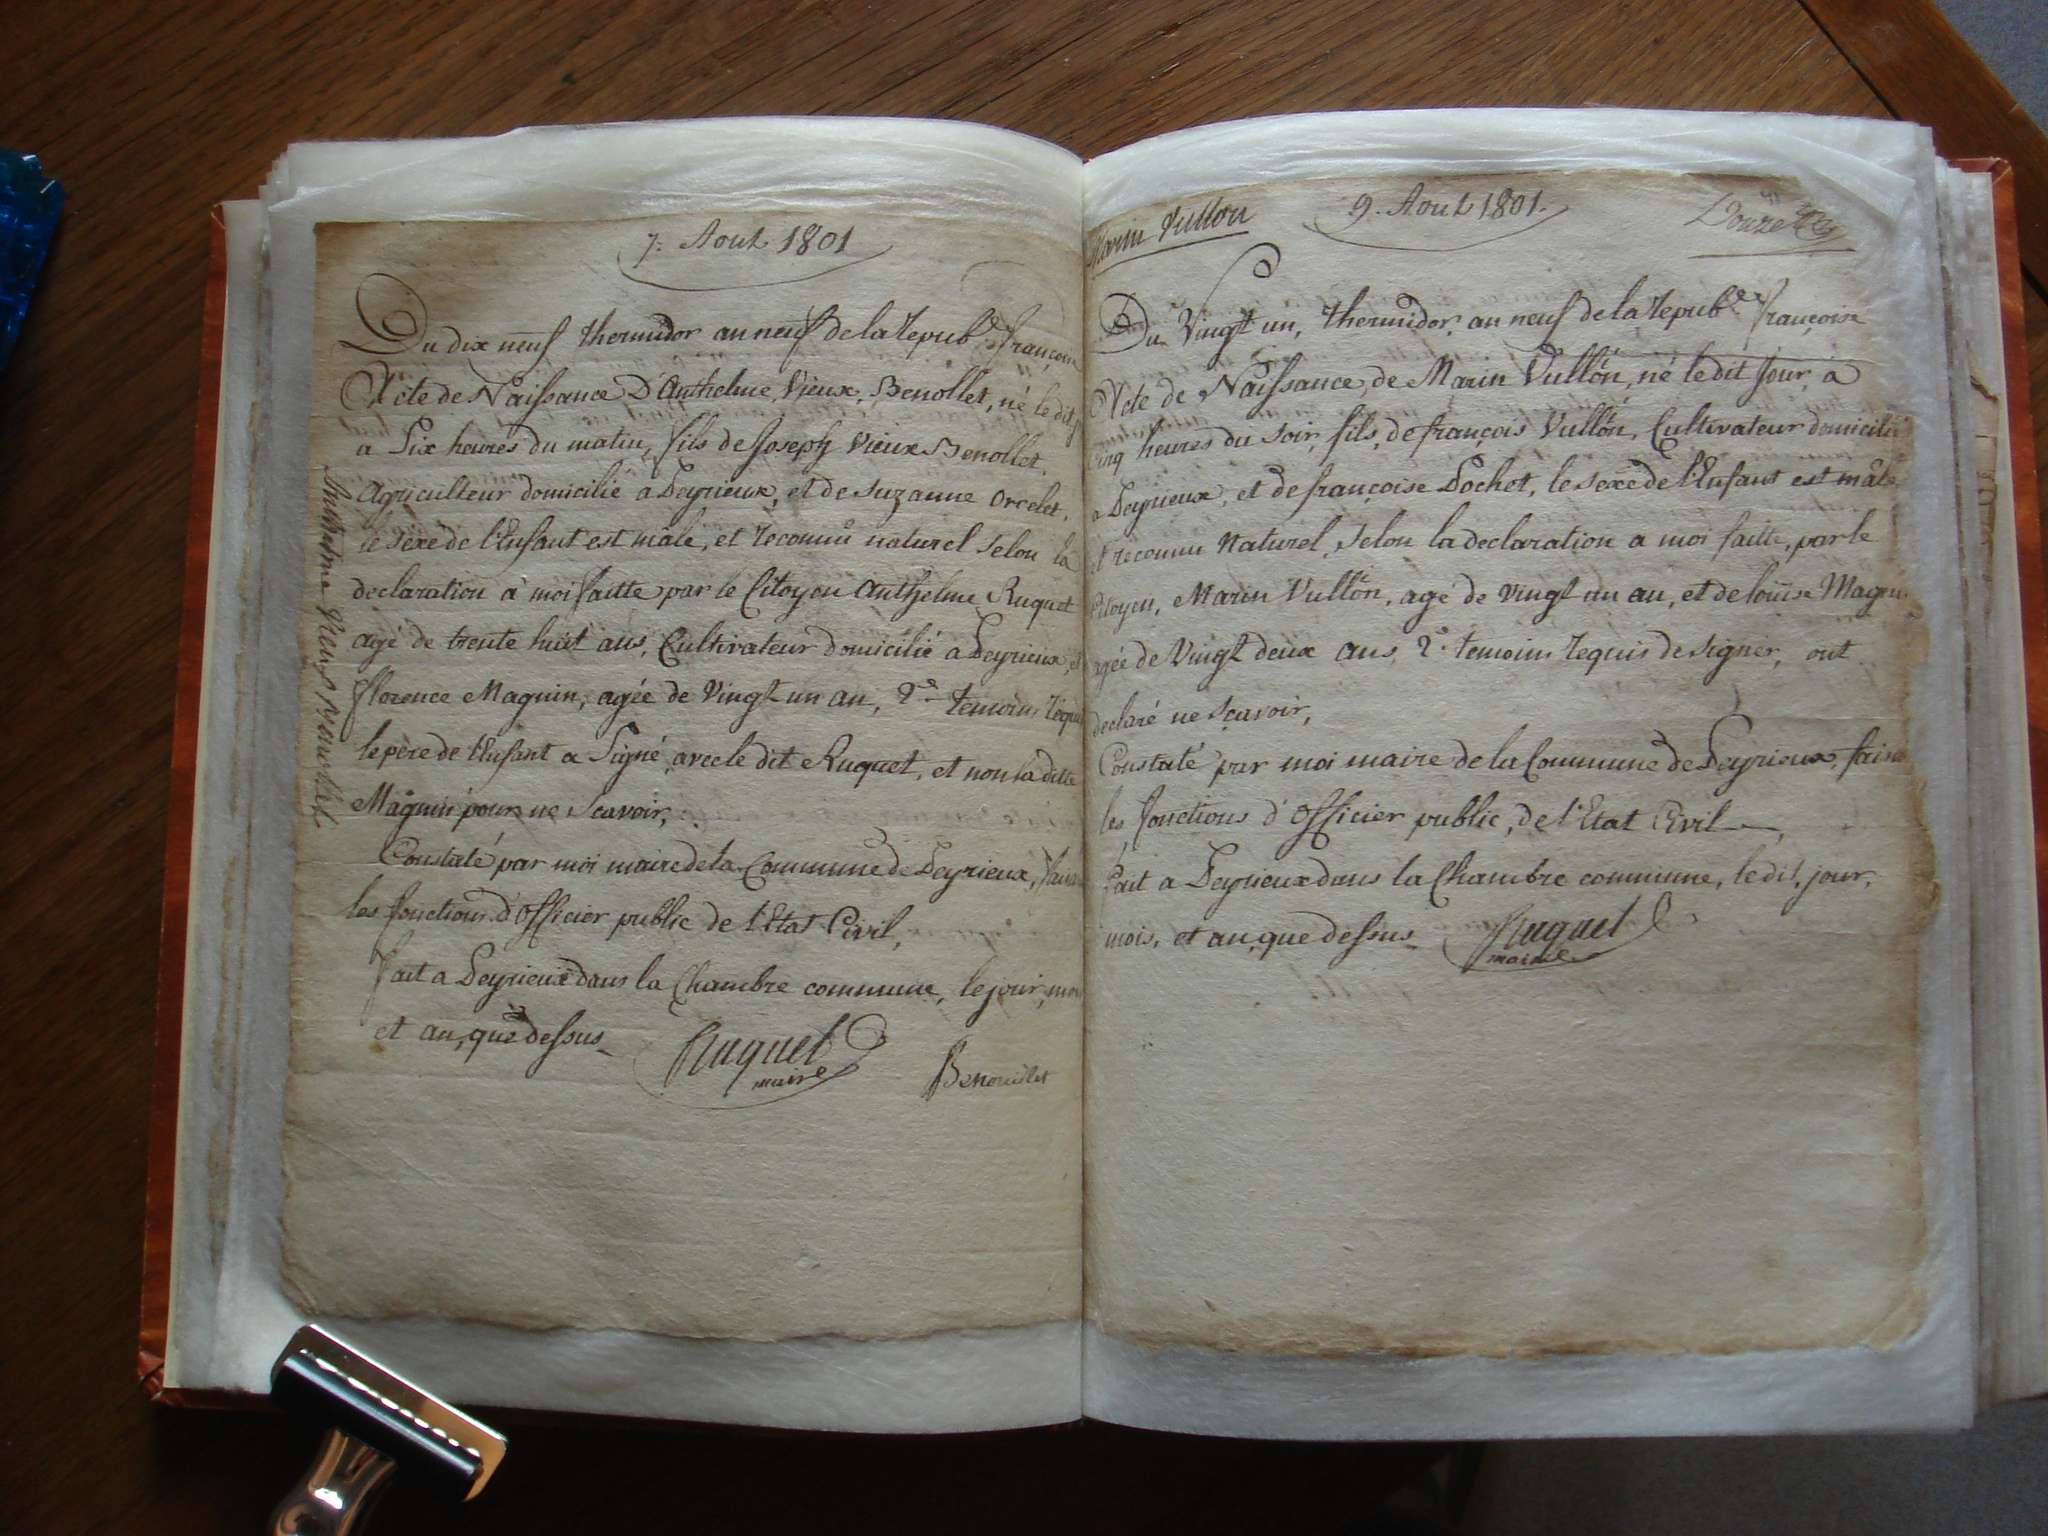 7. Aout 1801
Du dix neuf thermidor an neuf de la repub.e françoise
Acte de Naissance D'Anthelme Vieux Benollet, né le dit
a Six heures du matin, fils de Joseph Vieux Benollet
agriculteur domicilié a Leyrieux, et de Suzanne Orcelet,
le sexe de l'Enfant est mâle, et reconnû naturel selon la
declaration a moi faitte par le Citoyen Anthelme Ruquet
agé de trente huit ans, Cultivateur domicilié a Leyrieux, et
florence Maguin, agée de Vingt un an, 2.e temoins requis
le pere de l'Enfant a Signé avec le dit Ruquet, et non la ditte
Maguin pour ne Scavoir,
Constaté par moi maire de la Commune de Leyrieux,
les fonctions d'Officier public de l'Etat Civil,
fait a Leyrieux dans la Chambre commune, le jour, mois
et an, que dessus
Ruquet
maire
Benouillet
Anthelme Vieux
Marin Vullon
9. Aout 1801.
Douze
Du Vingt un, thermidor, an neuf de la repub.e françoise
Acte de Naissance, de Marin Vullon, né le dit Jour, à
Cinq heures du soir, fils, de françois Vullon, Cultivateur domicilié
a Leyrieux, et de françoise Pochet, le sexe de l'Enfant est mâle
et reconnu Naturel, Selon la declaration a moi faitte, par le
Citoyen, Marin Vullon, agé de vingt un an, et de louise Maguin
agée de Vingt deux ans, 2.e temoins requis de signer, ont
declaré ne scavoir,
Constaté par moi maire de la Commune de Leyrieux, faisant
les fonctions d'Officier public, de l'Etat Civil,
fait a Leyrieux dans la Chambre commune, le dit, jour,
mois, et an, que dessus
Ruquet
maire